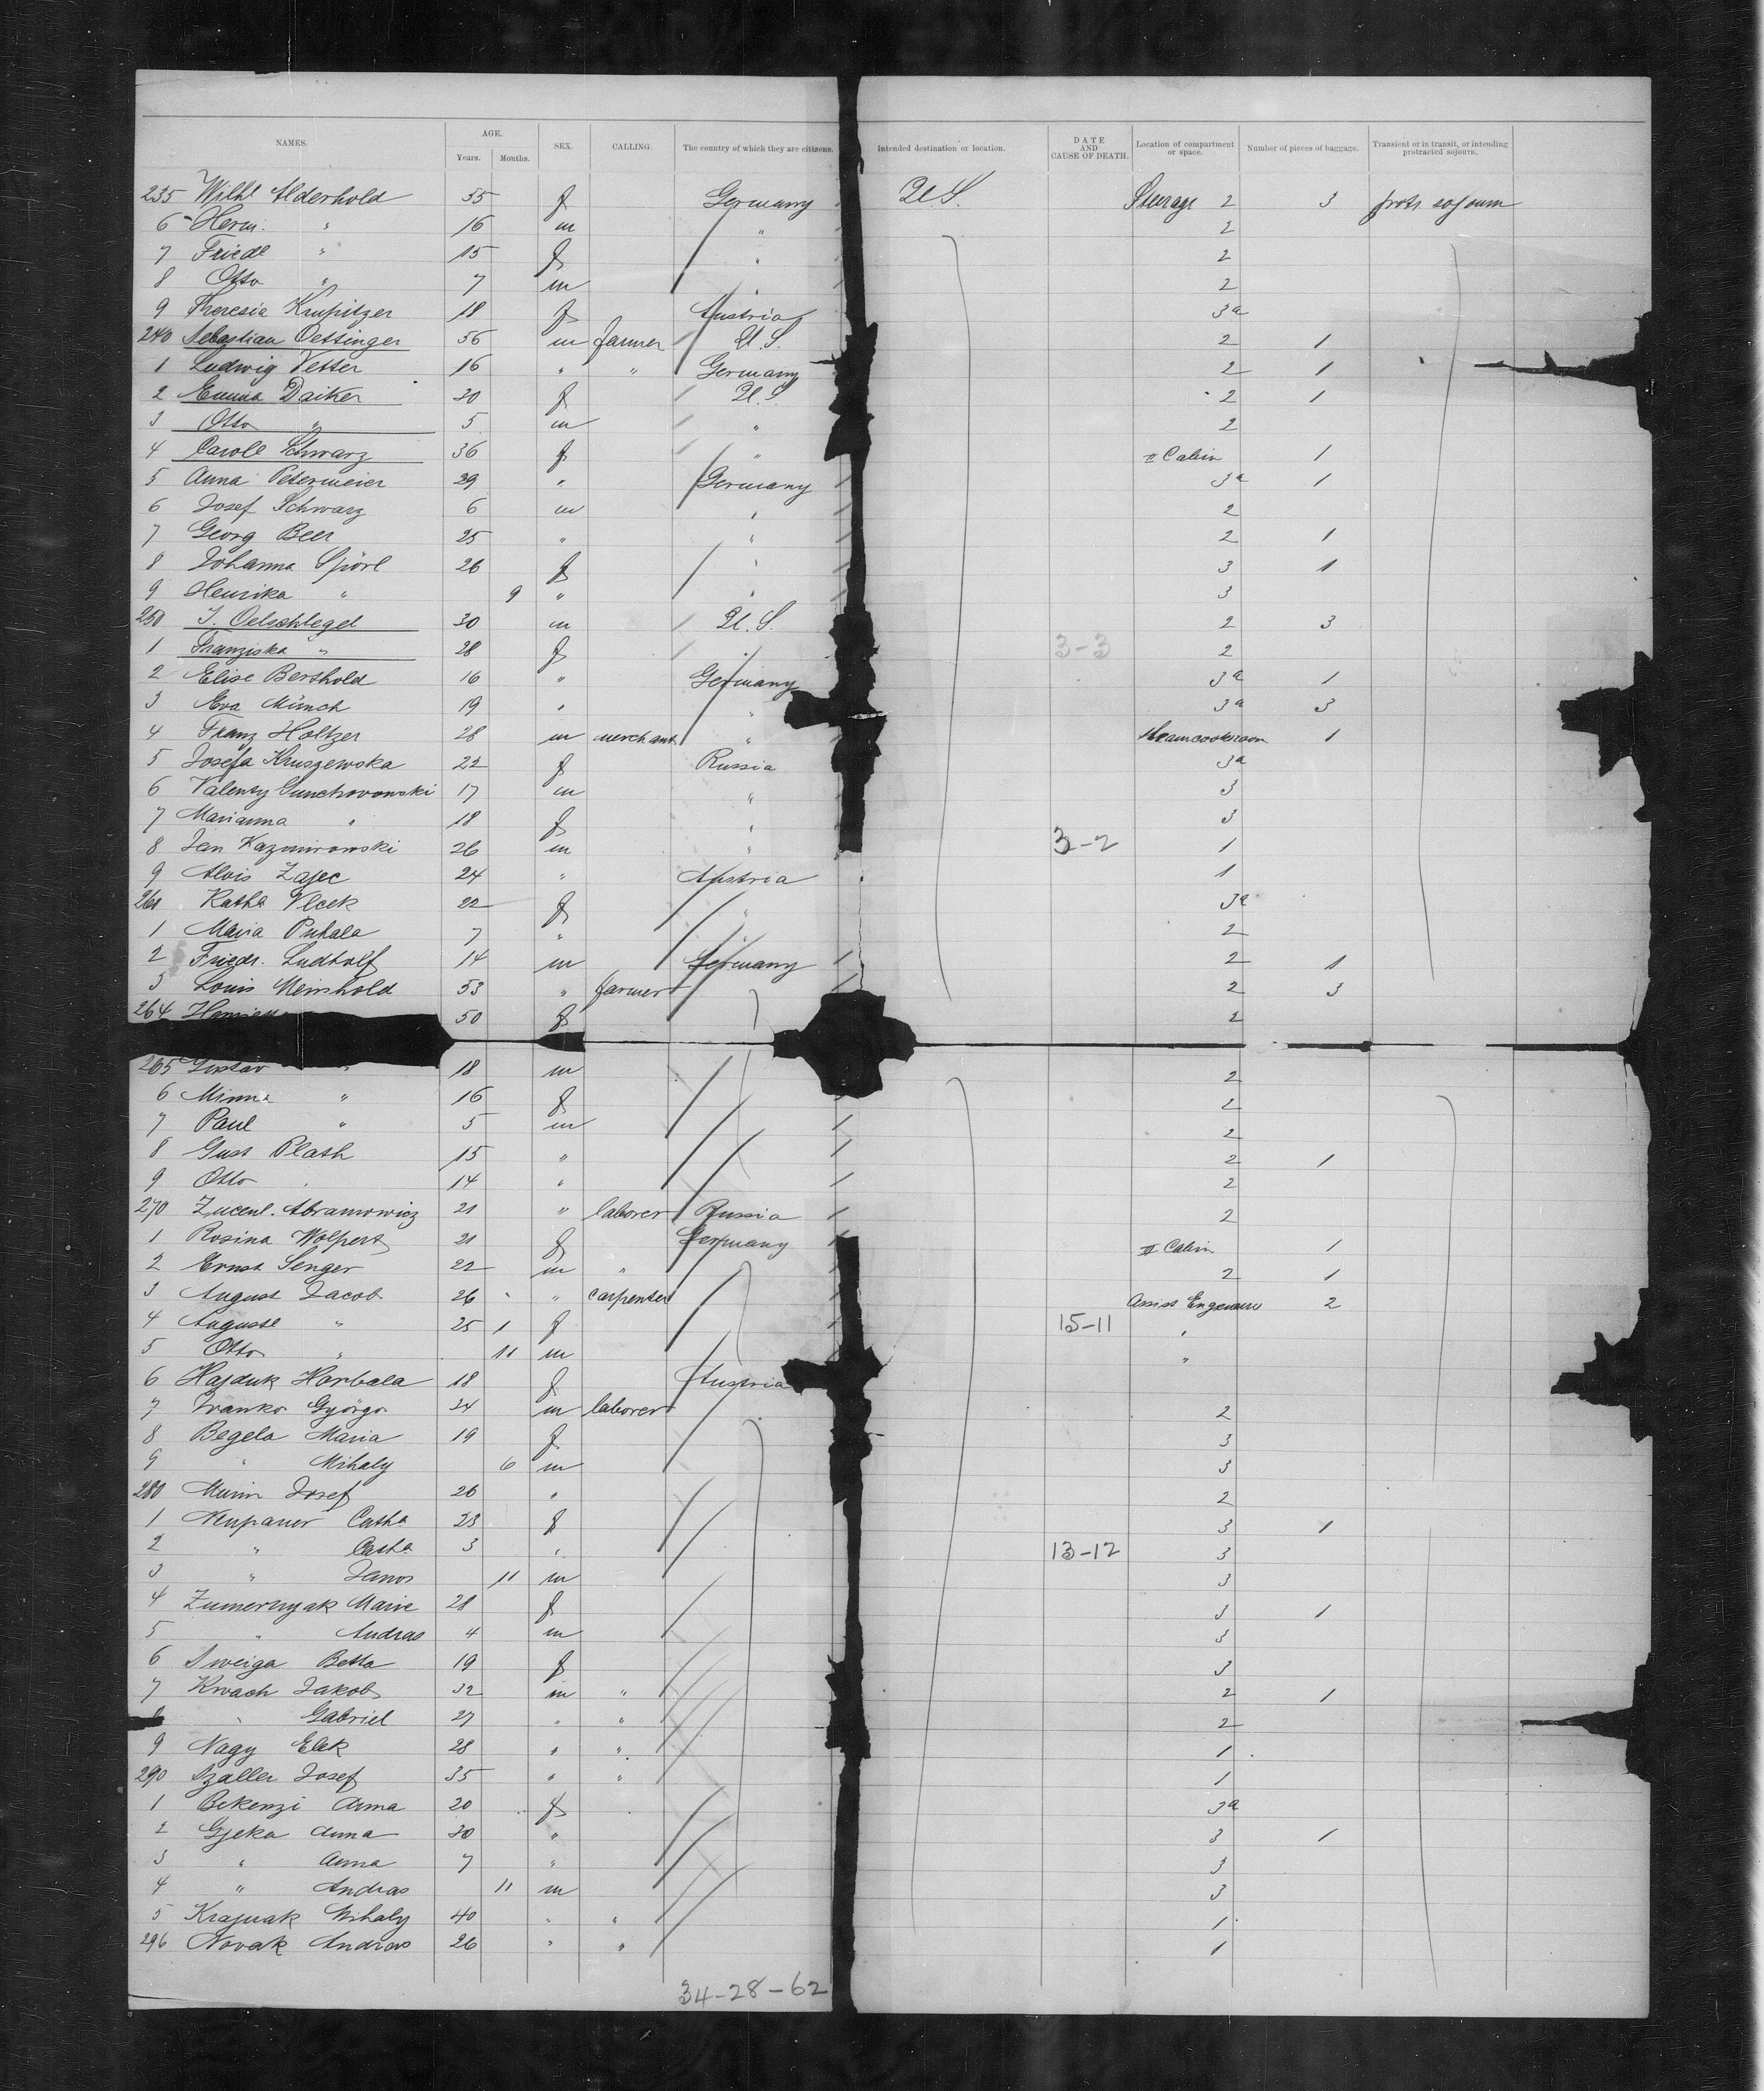 NAMES. AGE. Years. Months. SEX. CALLING. The country of which they are citizens. Intended destination or location. DATE AND CAUSE OF DEATH. Location of compartment or space. Number of pieces of baggage. Transient or in transit, or intending protracted sojourn.
235 Wilhl Alderhold 55 f Germany U.S. Steerage 2 3 protr. sojourn
6 Herm. " 16 m " 2
7 Friedl " 15 f " 2
8 Otto " 7 m " 2
9 Theresia Krupitzer 18 f Austria 3a
240 Sebastian Oettinger 56 m farmer U.S. 2 1
1 Ludwig Vetter 16 " " Germany 2 1
2 Emma Daiker 30 f U.S. 2 1
3 Otto " 5 m " 2
4 Caroll Schwarz 36 f " II Cabin 1
5 Anna Petermeier 29 " Germany 3a 1
6 Josef Schwarz 6 m " 2
7 Georg Beer 25 " " 2 1
8 Johanna Spörl 26 f " 3 1
9 Henrika " 9 " " 3
250 J. Oelschlegel 30 m U.S. 2 3
1 Franziska " 28 f " 3-3 2
2 Elise Berthold 16 " Germany 3a 1
3 Eva Münch 19 " " 3a 3
4 Franz Holtzer 28 m merchant " 1
5 Josefa Kruszewska 22 f Russia 3a
6 Valenty 17 m " 3
7 Marianna " 18 f " 3
8 Jan Kazmirowski 26 m " 3-2 1
9 Alois Zajec 24 " Austria 1
260 Katha Vlcek 22 f " 3a
1 Maria Puhala 7 " " 2
2 Friedr. Ludholf 14 m Germany 2 1
3 Louis Meinhold 53 " farmer 2 3
264 50 f 2
265 Gustav " 18 m 2
6 Minna " 16 f 2
7 Paul " 5 m 2
8 Gust Plath 15 " 2 1
9 Otto " 14 " 2
270 Abramowicz 21 " laborer Russia 2
1 Rosina Wolpert 21 f Germany II Cabin 1
2 Ernst Senger 22 m " 2 1
3 August Jacob 26 " carpenter Assist 2
4 Auguste " 25 1 f 15-11 "
5 Otto " 11 m "
6 Hajduk Horbala 18 f Austria
7 Ivanko György 24 m laborer 2
8 Begela Maria 19 f 3
9 " Mihaly 6 m 3
280 Josef 26 " 2
1 Neupauer Catha 23 f 3 1
2 " Catha 3 " 13-12 3
3 " Janos 11 m 3
4 Zumernyak Marie 28 f 3 1
5 " Andras 4 m 3
6 Sweiga Betta 19 f 3
7 Kwach Jakob 32 m " 2 1
" Gabriel 27 " " 2
9 Nagy Elek 28 " " 1
290 Szaller Josef 35 " " 1
1 Bekenzi Anna 20 f 3a
2 Gjeka Anna 30 " 3 1
3 " Anna 7 " 3
4 " Andras 11 m 3
5 Krajnak Mihaly 40 " " 1
296 Novak Andras 26 " " 1
34-28-62